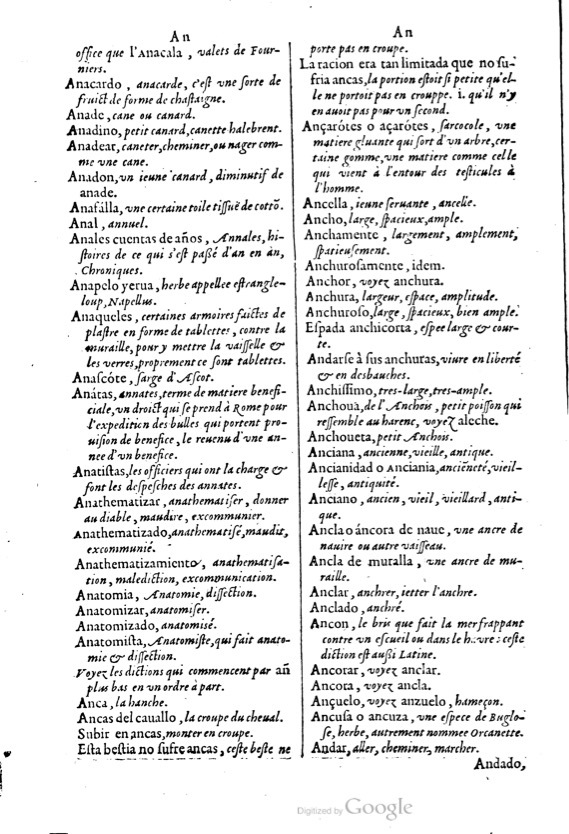 An
office que l'Anacala, valets de Four-
niers.
Anacardo, anacarde, c'est vne sorte de
fruict de forme de chastaigne.
Anade, cane ou canard.
Anadino, petit canard, canette halebrent.
Anadear, caneter, cheminer, ou nager com-
me vne cane.
Anadon, vn ieune canard, diminutif de
anade.
Anafalla, vne certaine toile tissuë de cottõ.
Anal, annuel.
Anales cuentas de años, Annales, hi-
stoires de ce qui s'est passé d'an en an,
Chroniques.
Anapelo yerua, herbe appellee estrangle-
loup, Napellus.
Anaqueles, certaines armoires faictes de
plastre en forme de tablettes, contre la
muraille, pour y mettre la vaisselle &
les verres, proprement ce sont tablettes.
Anascóte, sarge d'Ascot.
Anátas, annates, terme de matiere benefi-
ciale, vn droict qui se prend à Rome pour
l'expedition des bulles qui portent pro-
uision de benefice, le reuenu d'vne an-
nee d'vn benefice.
Anatistas, les officiers qui ont la charge &
font les despesches des annates.
Anathematizar, anathematiser, donner
au diable, maudire, excommunier.
Anathematizado, anathematisé, maudit,
excommunié.
Anathematizamiento, anathematisa-
tion, malediction, excommunication.
Anatomia, Anatomie, dissection.
Anatomizar, anatomiser.
Anatomizado, anatomisé.
Anatomista, Anatomiste, qui fait anato-
mie & dissection.
Voyez les dictions qui commencent par añ
plus bas en vn ordre à part.
Anca, la hanche.
Ancas del cauallo, la croupe du cheual.
Subir en ancas, monter en croupe.
Esta bestia no sufre ancas, ceste beste ne
An
porte pas en croupe.
La racion era tan limitada que no su-
fria ancas, la portion estoit si petite qu'el-
le ne portoit pas en crouppe. i. qu'il n'y
en auoit pas pour vn second.
Ançarótes o açarótes, sarcocole, vne
matiere gluante qui sort d'vn arbre, cer-
taine gomme, vne matiere comme celle
qui vient à l'entour des testicules à
l'homme.
Ancella, ieune seruante, ancelle.
Ancho, large, spacieux, ample.
Anchamente, largement, amplement,
spatieusement.
Anchurosamente, idem.
Anchor, voyez anchura.
Anchura, largeur, espace, amplitude.
Anchuroso, large, spacieux, bien ample.
Espada anchicorta, espee large & cour-
te.
Andarse à sus anchuras, viure en liberté
& en desbauches.
Anchissimo, tres-large, tres-ample.
Anchoua, de l'Anchois, petit poisson qui
ressemble au harenc, voyez aleche.
Anchoueta, petit Anchois.
Anciana, ancienne, vieille, antique.
Ancianidad o Anciania, anciẽneté, vieil-
lesse, antiquité.
Anciano, ancien, vieil, vieillard, anti-
que.
Ancla o áncora de naue, vne ancre de
nauire ou autre vaisseau.
Ancla de muralla, vne ancre de mu-
raille.
Anclar, anchrer, ietter l'anchre.
Anclado, anchré.
Ancon, le bris que fait la mer frappant
contre vn escueil ou dans le havre: ceste
diction est aussi Latine.
Ancorar, voyez anclar.
Ancora, voyez ancla.
Ançuelo, voyez anzuelo, hameçon.
Ancusa o ancuza, vne espece de Buglo-
se, herbe, autrement nommee Orcanette.
Andar, aller, cheminer, marcher.
Andado,
Digitized by Google